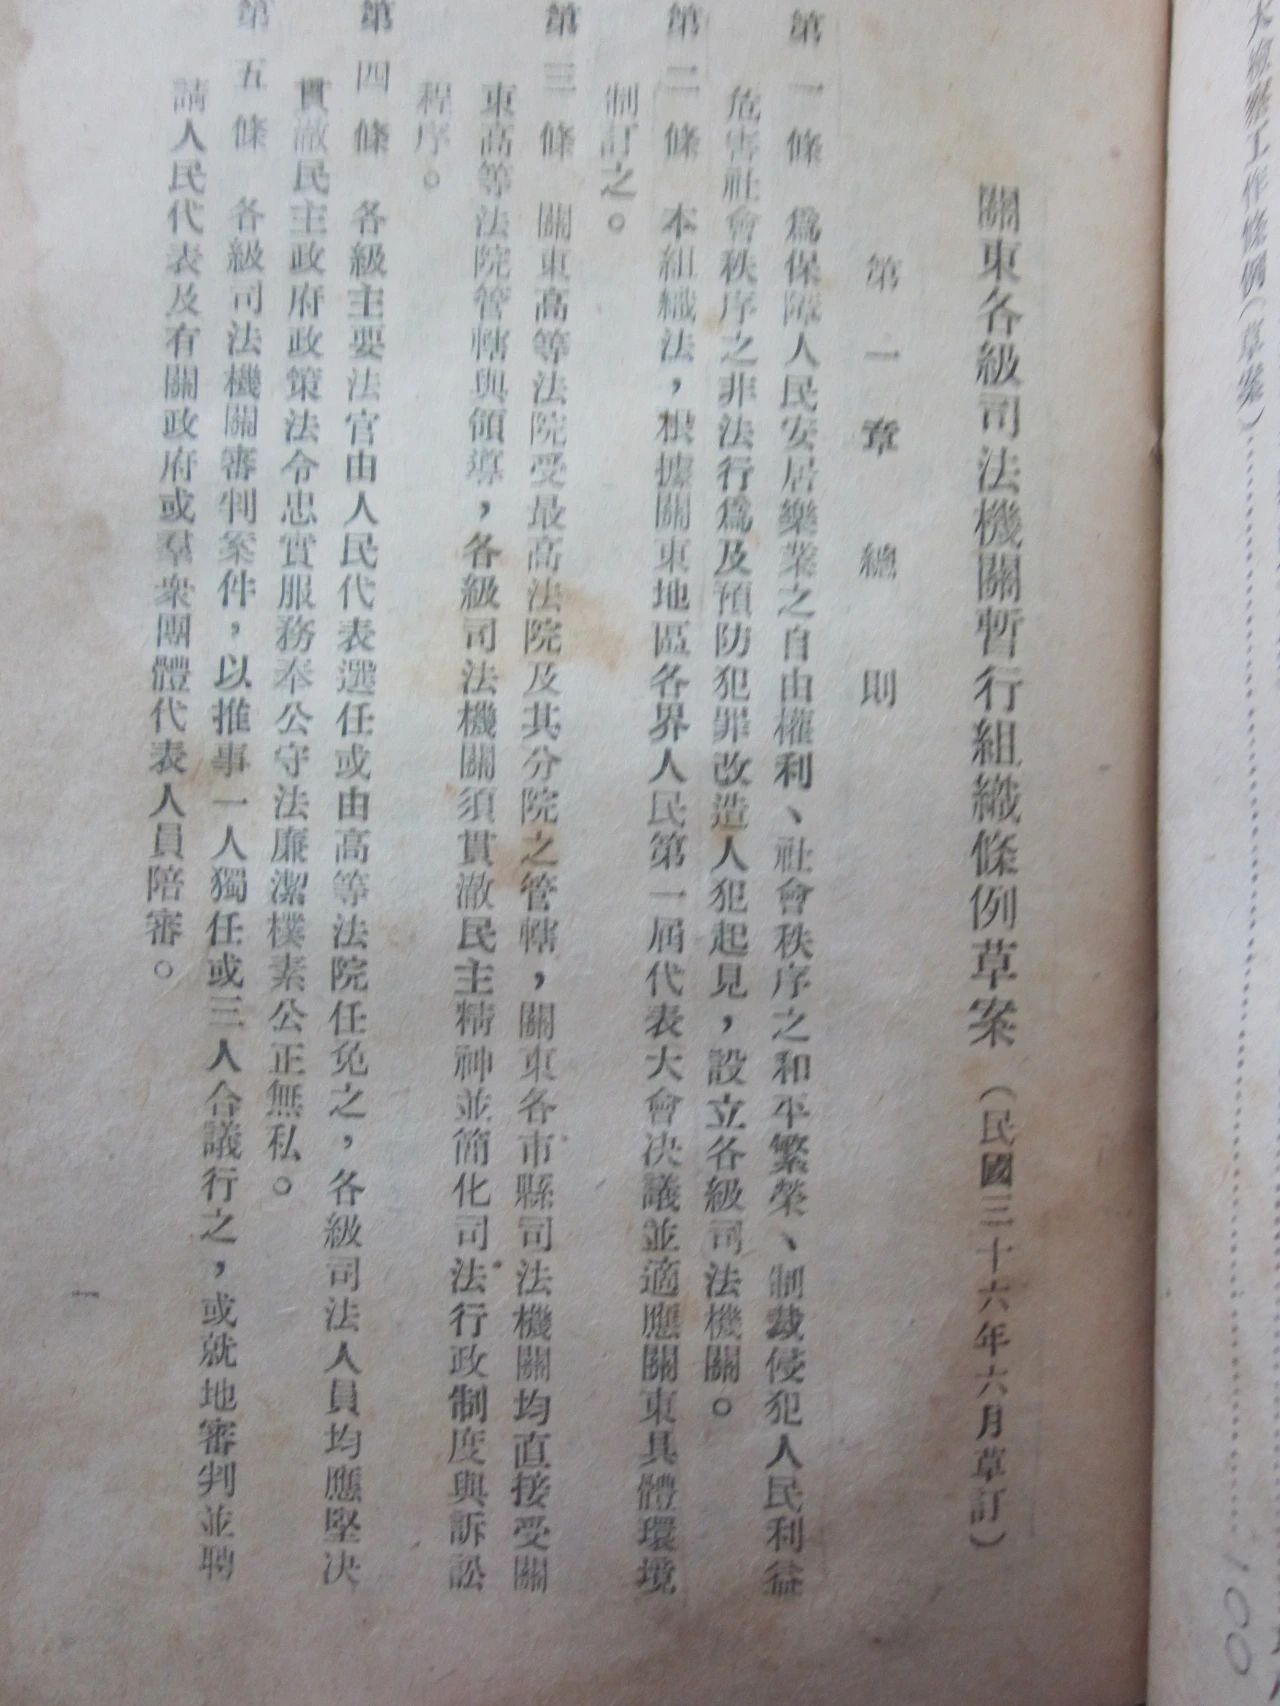 關東各級司法機關暫行組織條例草案（民國三十六年六月草訂）
第一章 總則
第一條 爲保障人民安居樂業之自由權利、社會秩序之和平繁榮、制裁侵犯人民利益
危害社會秩序之非法行爲及預防犯罪改造人犯起見，設立各級司法機關。
第二條 本組織法，根據關東地區各界人民第一屆代表大會决議並適應關東具體環境
制訂之。
第三條 關東高等法院受最高法院及其分院之管轄，關東各市縣司法機關均直接受關
東高等法院管轄與領導，各級司法機關須貫澈民主精神並簡化司法行政制度與訴訟
程序。
第四條 各級主要法官由人民代表選任或由高等法院任免之，各級司法人員均應堅决
貫澈民主政府政策法令忠實服務奉公守法廉潔樸素公正無私。
第五條 各級司法機關審判案件，以推事一人獨任或三人合議行之，或就地審判並聘
請人民代表及有關政府或羣衆團體代表人員陪審。
一
工作條例（草案）
100